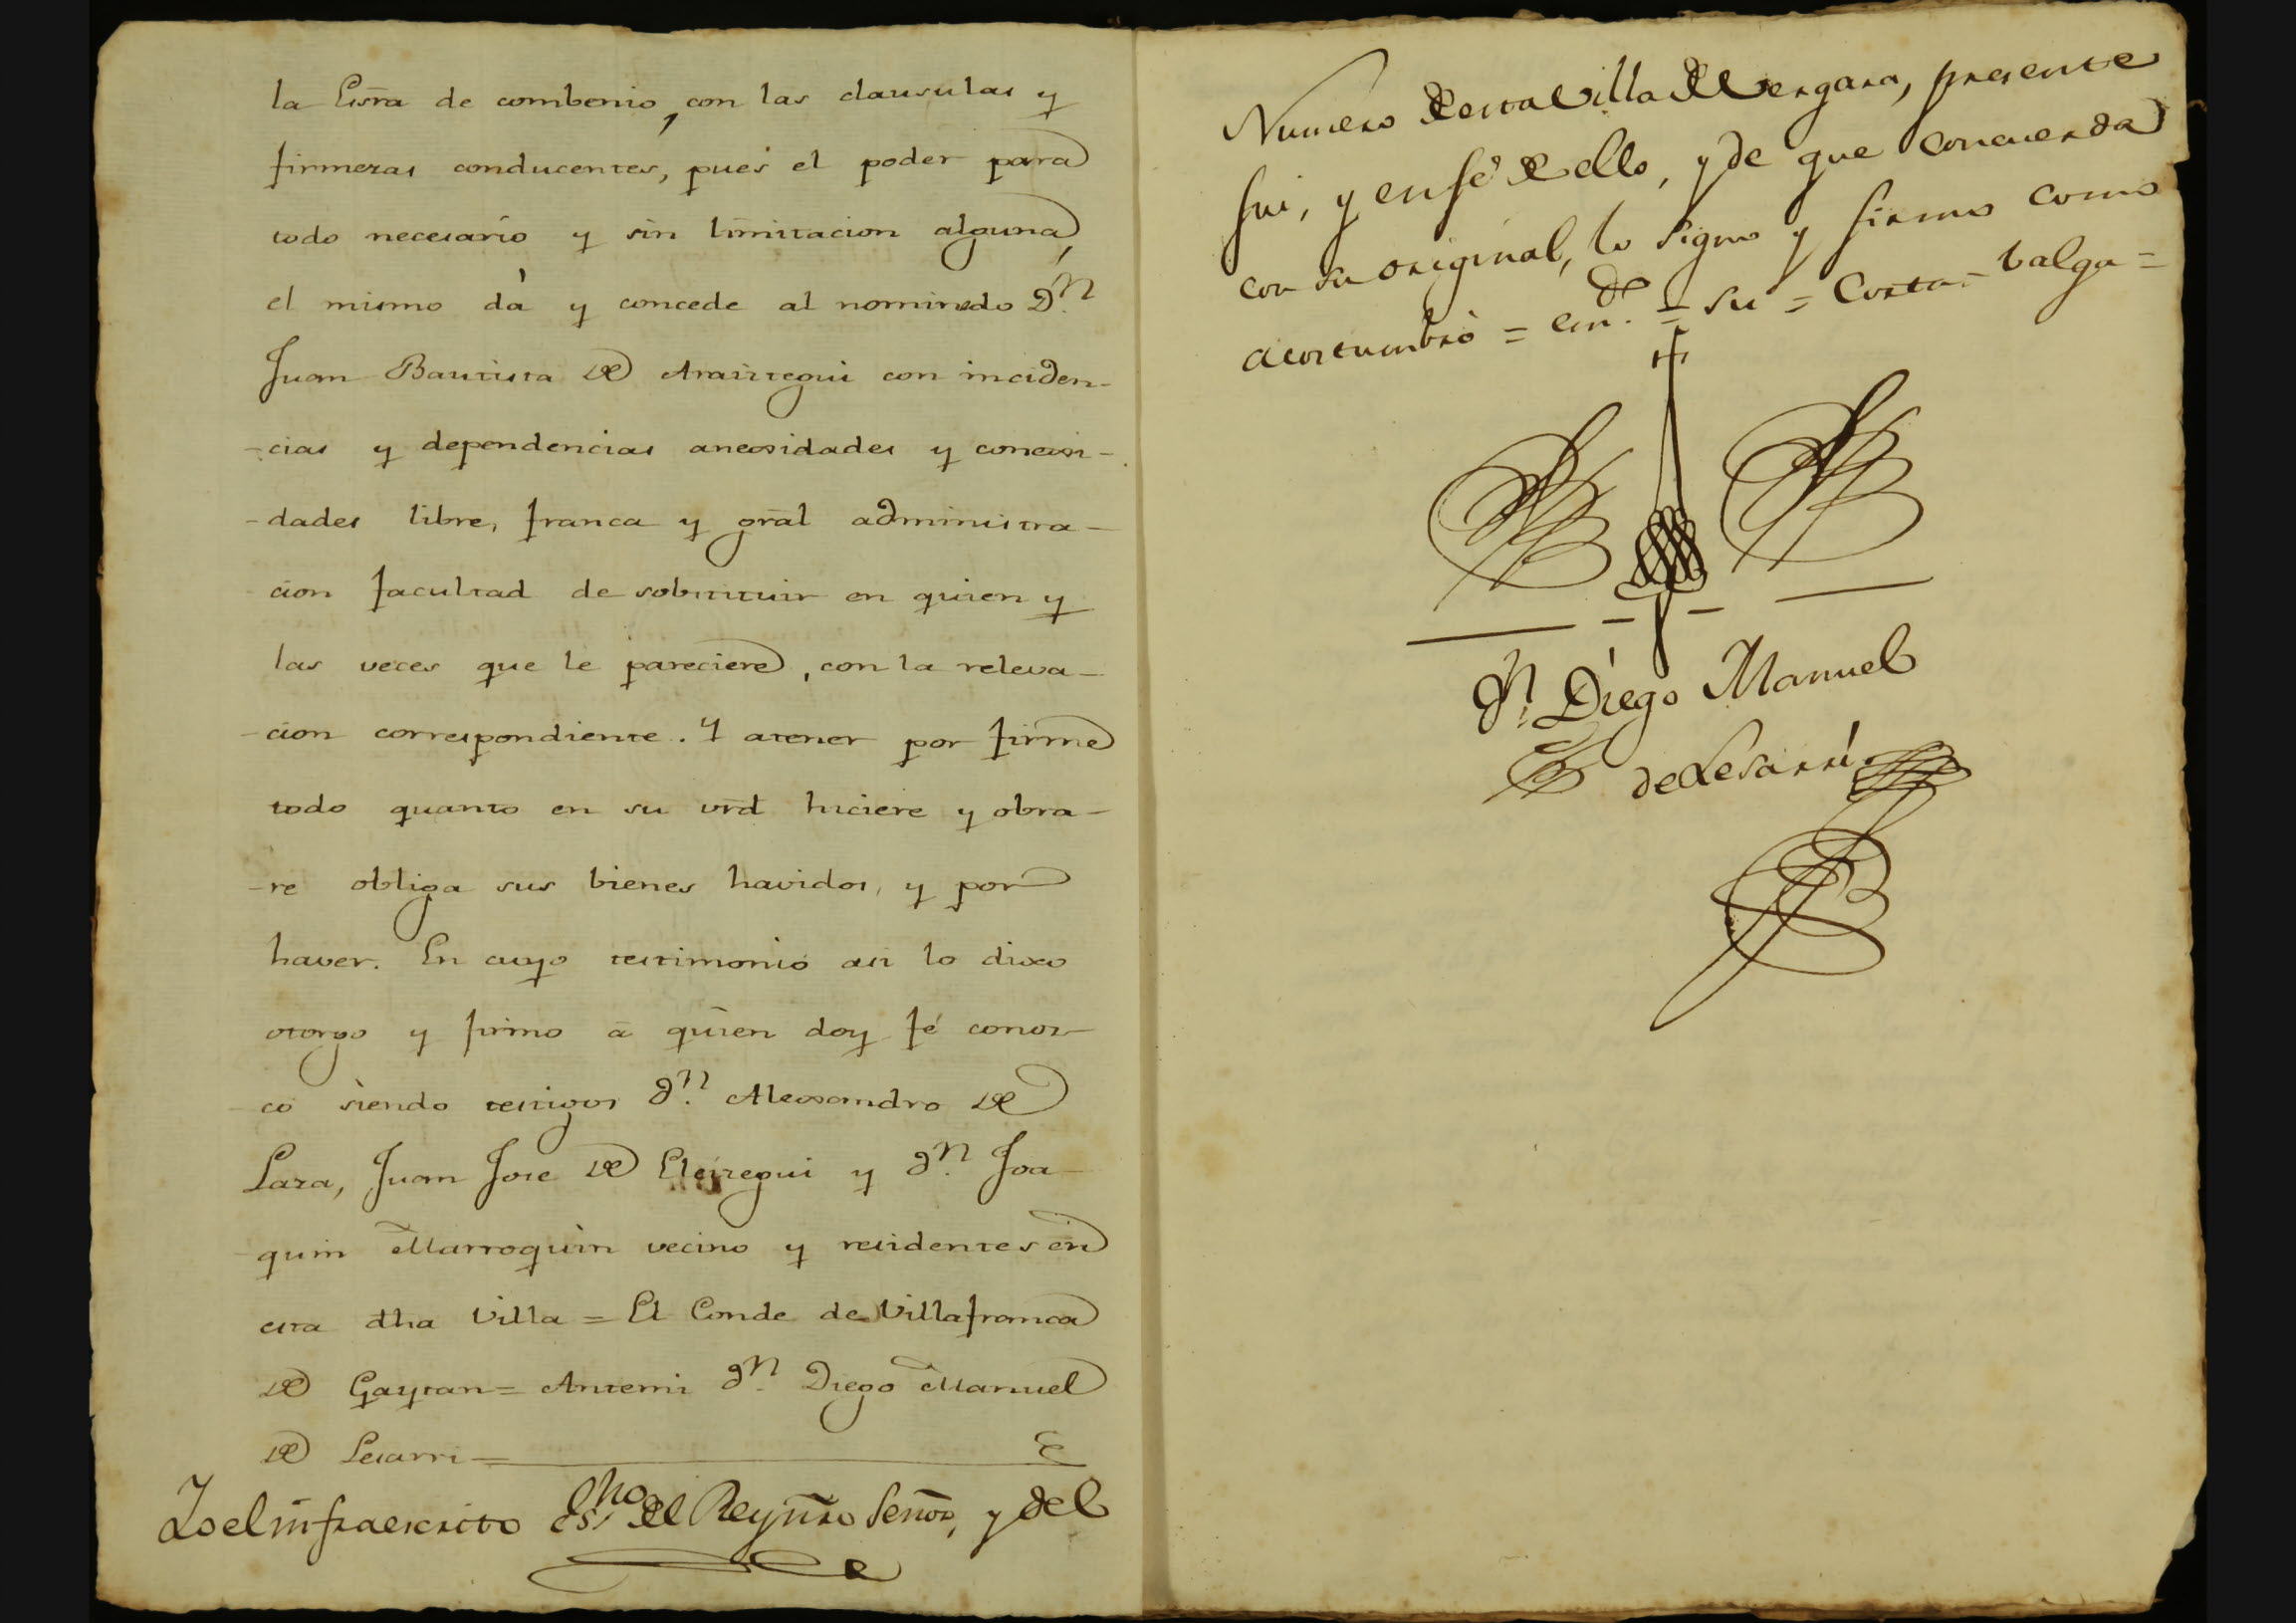 la Essra de combenio, con las clausulas y
firmezas conducentes, pues el poder para
todo necesario y sin limitacion alguna,
el mismo dà y concede al nominado Dn.
Juan Bautista de Araiztegui con inciden-
-cias y dependencias anexidades y conexi-
-dades libre, franca y gral administra-
cion facultad de sobstituir en quien y
las veces que le pareciere, con la releva-
-cion correspondiente. Y atener por firme
todo quanto en su vrd hiciere y obra-
-re obliga sus bienes havidos, y por
haver. En cuyo testimonio asi lo dixo
otorgo y firmo a quien doy fé conoz-
-co siendo testigos Dn. Alexandro de
Laza, Juan Jose de Eleizegui y Dn. Joa-
quin Marroquin vecino y residentes en
esta dha Villa = El Conde de Villafranca
de Gaytan = Antemi Dn. Diego Manuel
de Lesarri =
Yo el infraescrito Essno del Rey ñro Señor, y del
Numero de esta Villa de Vergara, presente
fui, y en fé de ello, y de que concuerda
con su original, lo signo y firmo como
acostumbro = em.do = su = Costa = balga =
Dn. Diego Manuel
de Lesarri